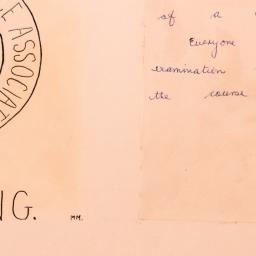 E ASSOCIAT
G.
MM.
of a
Everyone
examination
the course